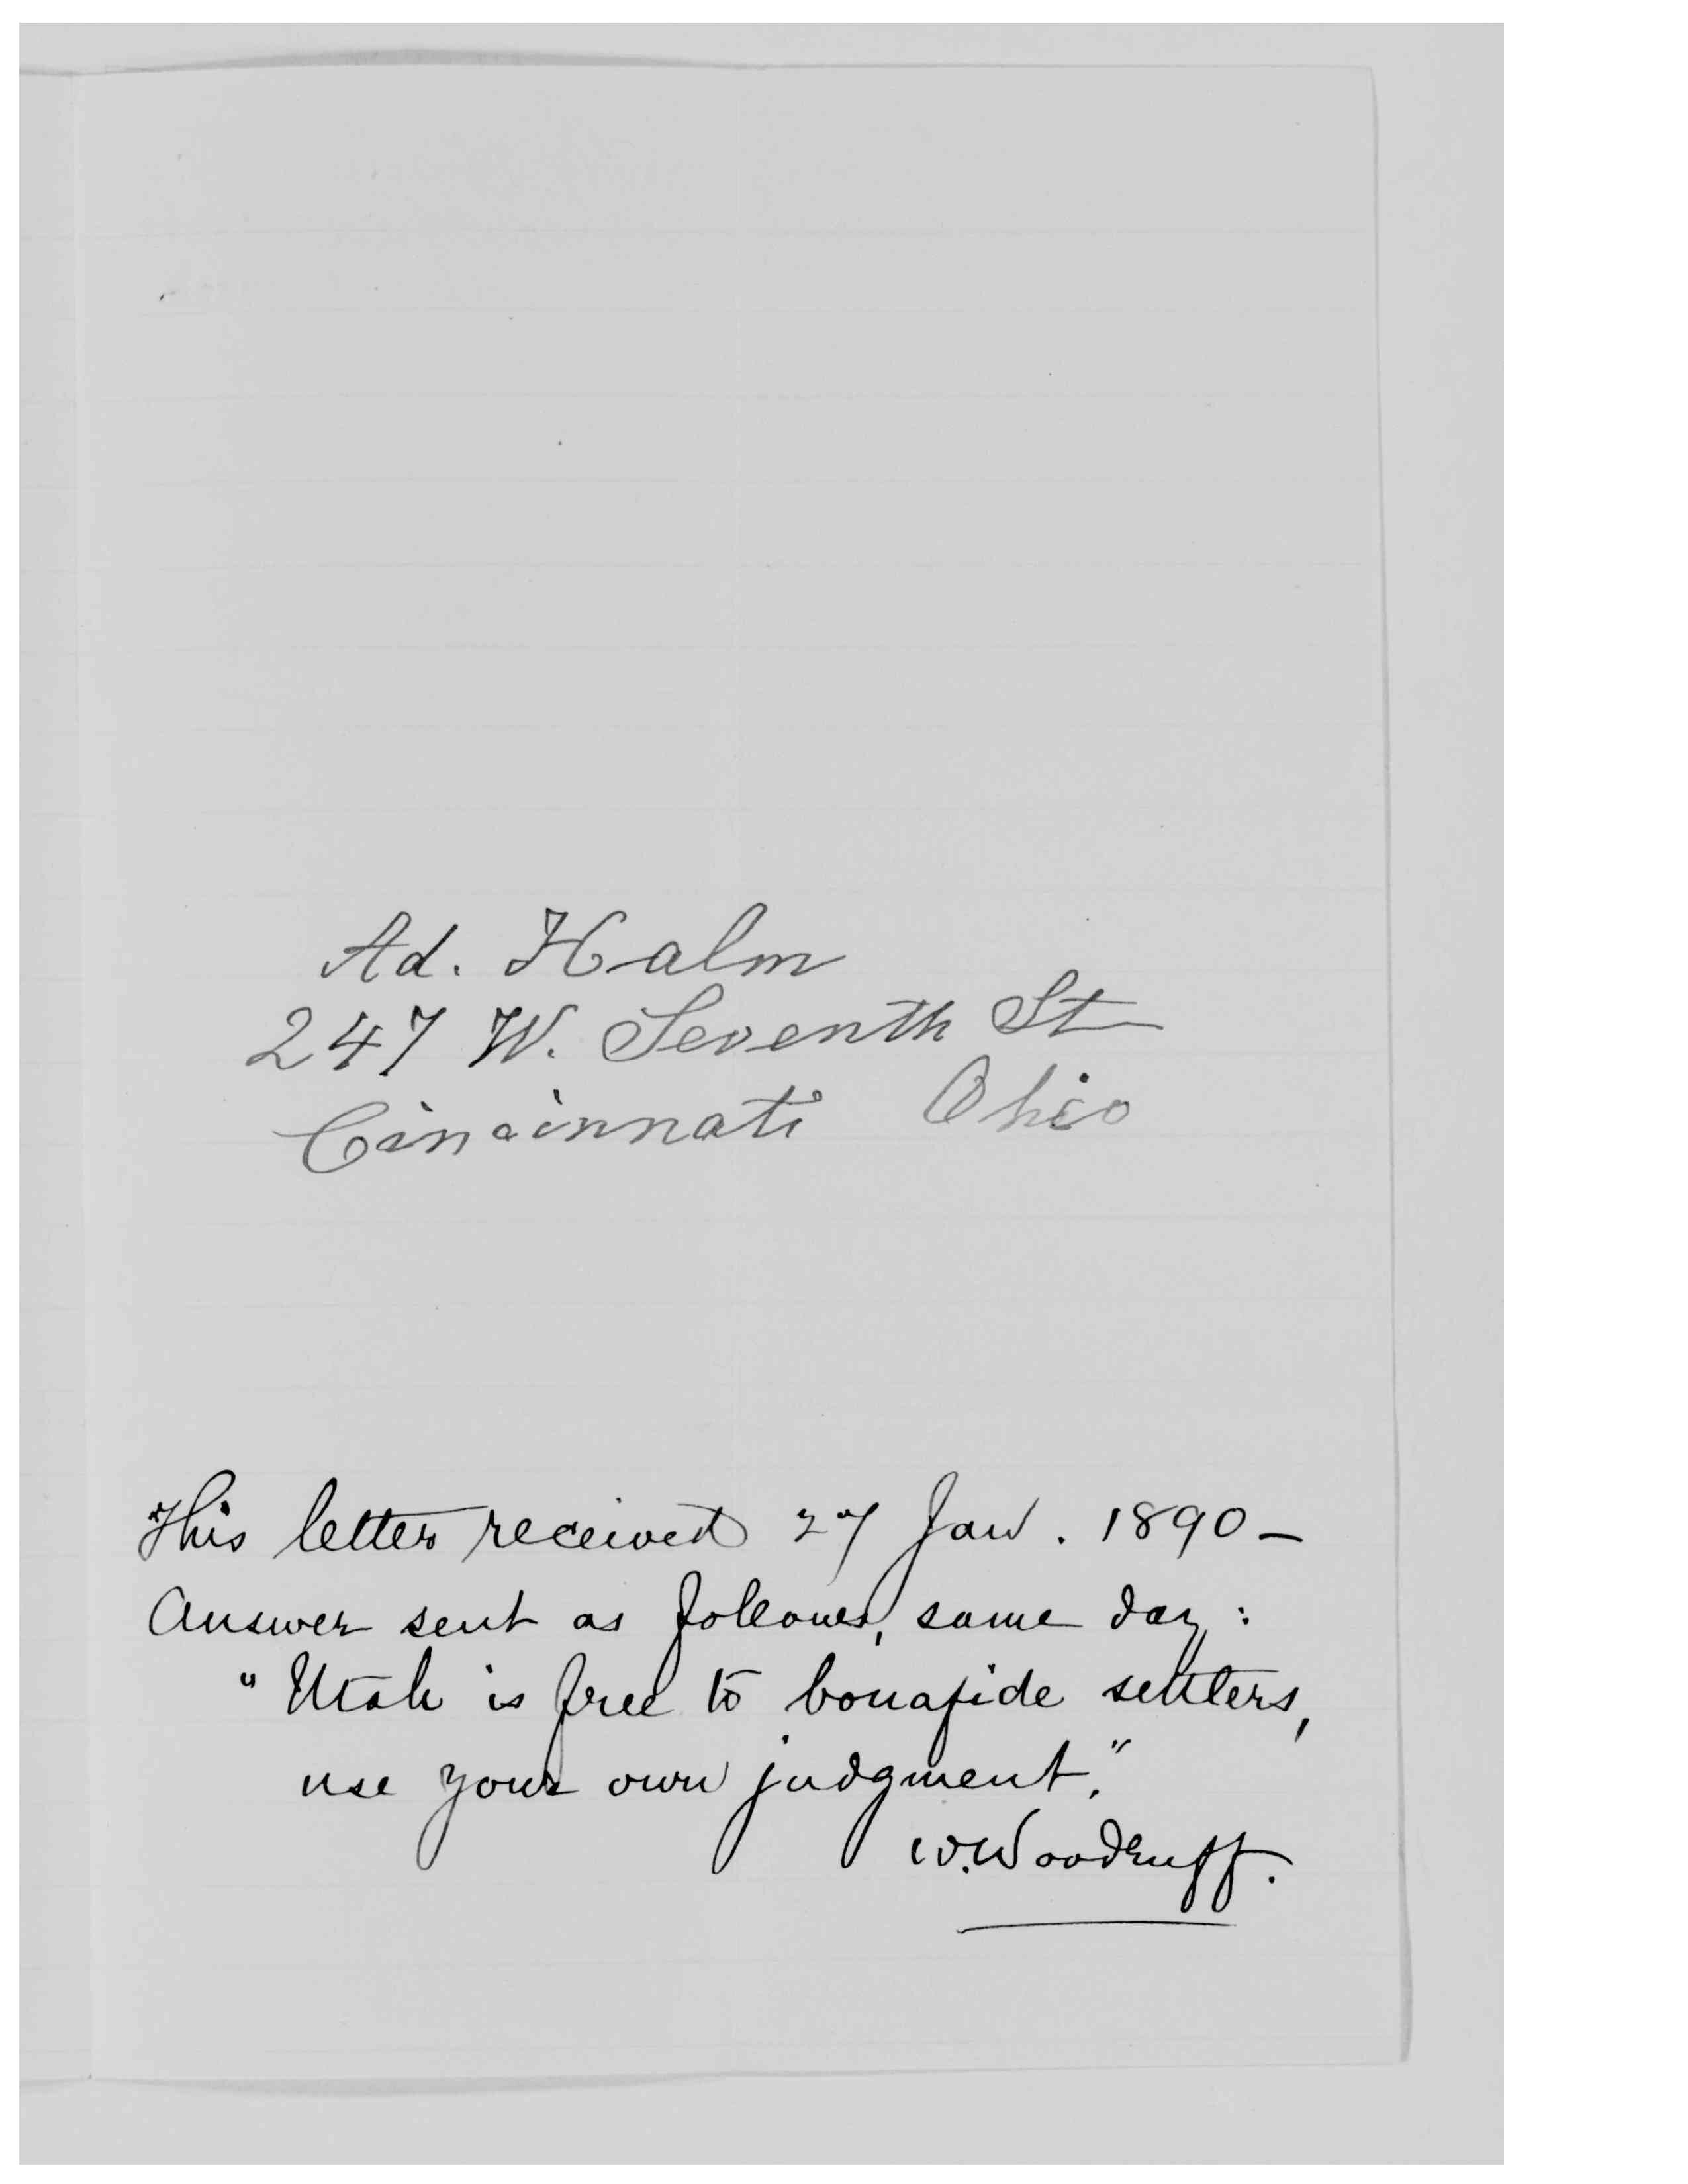 Ad. Halm
247 W. Seventh St
Cincinnati Ohio
This letter received 27 Jan. 1890 –
Answer sent as follows, same day:
"Utah is free to bonafide settlers,
use your own judgment."
W. Woodruff.